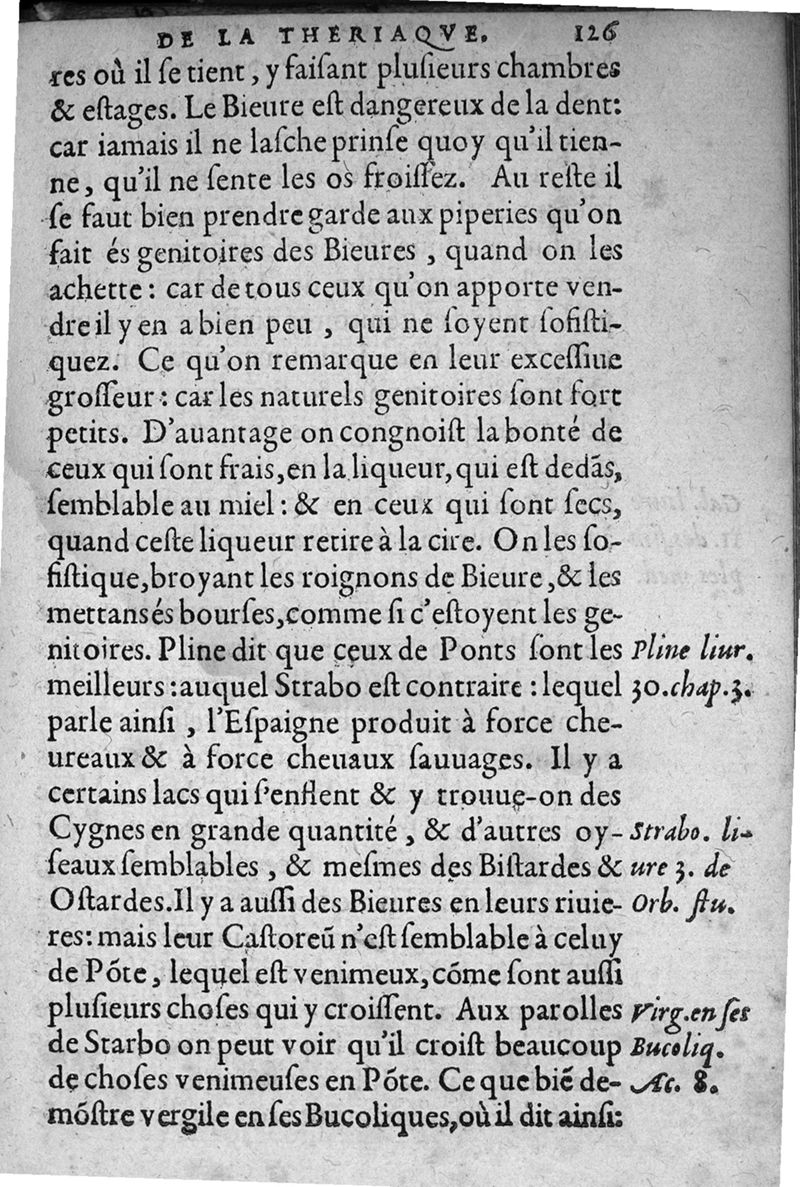 DE LA THERIAQVE. 126
res où il ſe tient, y faiſant pluſieurs chambres
& eſtages. Le Bieure eſt dangereux de la dent:
car iamais il ne laſche prinſe quoy qu'il tien-
ne, qu'il ne ſente les os froiſſez. Au reſte il
ſe faut bien prendre garde aux piperies qu'on
fait és genitoires des Bieures, quand on les
achette: car de tous ceux qu'on apporte ven-
dre il y en a bien peu, qui ne ſoyent ſofiſti-
quez. Ce qu'on remarque en leur exceſſiue
groſſeur: car les naturels genitoires ſont fort
petits. D'auantage on congnoiſt la bonté de
ceux qui ſont frais, en la liqueur, qui eſt dedãs,
ſemblable au miel: & en ceux qui ſont ſecs,
quand ceſte liqueur retire à la cire. On les ſo-
fiſtique, broyant les roignons de Bieure, & les
mettans és bourſes, comme ſi c'eſtoyent les ge-
nitoires. Pline dit que ceux de Ponts ſont les
meilleurs: auquel Strabo eſt contraire: lequel
parle ainſi, l'Eſpaigne produit à force che-
ureaux & à force cheuaux ſauuages. Il y a
certains lacs qui ſ'enflent & y trouue-on des
Cygnes en grande quantité, & d'autres oy-
ſeaux ſemblables, & meſmes des Biſtardes &
Oſtardes. Il y a auſſi des Bieures en leurs riuie-
res: mais leur Caſtoreũ n'eſt ſemblable à celuy
de Põte, lequel eſt venimeux, cõme ſont auſſi
pluſieurs choſes qui y croiſſent. Aux parolles
de Starbo on peut voir qu'il croiſt beaucoup
de choſes venimeuſes en Põte. Ce que biẽ de-
mõſtre vergile en ſes Bucoliques, où il dit ainſi:
Pline liur.
30. chap. 3.
Strabo. li-
ure 3. de
Orb. ſtu.
Virg. en ſes
Bucoliq.
Æc. 8.